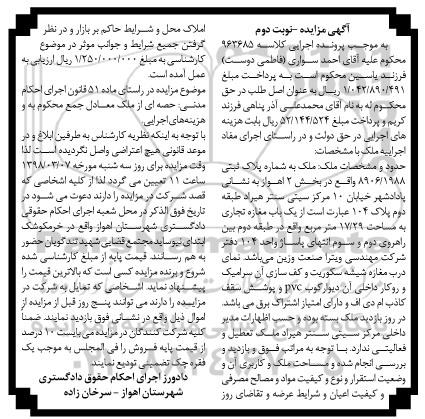 آگهی مزایده -نوبت دوم
به موجب پرونده اجرایی کلاسه ۹۶۳۶۸۵
محکوم علیه آقای احمد سواری (فاطمی دوست)
فرزند یاسین محکوم است به پرداخت مبلغ
۱/۰۴۲/۸۹۰/۴۹۱ ریال به عنوان اصل طلب در حق
محکوم له به نام آقای محمدعلی آذر پناهی فرزند
کریم و پرداخت مبلغ ۵۲/۱۴۴/۵۲۴ ریال بابت هزینه
های اجرایی در حق دولت و در راستای اجرای مفاد
اجراییه ملک با مشخصات:
حدود و مشخصات ملک: ملک به شماره پلاک ثبتی
۸۹۰۶/۱۹۸۸ واقع در بخش ۲ اهواز به نشانی
پادادشهر خیابان ۱۰ مرکز سیتی سنتر هیراد طبقه
دوم پلاک ۱۰۴ عبارت است از یک باب مغازه تجاری
به مساحت ۱۷/۲۹ متر مربع واقع در طبقه دوم بین
راهروی دوم و سوم انتهای پاساژ واحد ۱۰۴ دفتر
شرکت مهندسی ویترا صنعت وزین می‌باشد. نمای
درب مغازه شیشه سکوریت و کف سازی آن سرامیک
و روکار داخلی آن دیوارکوب pvc و پوشش سقف
کاذب ام دی اف و دارای امتیاز اشتراک برق می باشد.
در روز بازدید ملک بسته بوده و حسب اظهارات مدیر
داخلی مرکز سیتی سنتر هیراد ملک تعطیل و
فعالیتی ندارد. با توجه به مراتب فوق و بازدید و
بررسی انجام شده و مساحت ملک و کاربری آن و
وضعیت استقرار و نوع و کیفیت مواد و مصالح مصرفی
و کیفیت اعیان و شرایط عرضه و تقاضای روز
املاک محل و شرایط حاکم بر بازار و در نظر
گرفتن جمیع شرایط و جوانب موثر در موضوع
کارشناسی به مبلغ ۱/۲۵۰/۰۰۰/۰۰۰ ریال ارزیابی به
عمل آمده است.
موضوع مزایده در راستای ماده ۵۱ قانون اجرای احکام
مدنی: حصه ای از ملک معادل جمع محکوم به و
هزینه‌های اجرایی.
با توجه به اینکه نظریه کارشناس به طرفین ابلاغ و در
موعد قانونی هیچ اعتراضی واصل نگردیده است لذا
وقت مزایده برای روز سه شنبه مورخه ۱۳۹۸/۰۳/۰۷
ساعت ۱۱ تعیین می گردد لذا از کلیه اشخاصی که
قصد شرکت در مزایده را دارند دعوت می شود در
تاریخ فوق الذکر در محل شعبه اجرای احکام حقوقی
دادگستری شهرستان اهواز واقع در خرمکوشک
ابتدای نیوساید مجتمع قضایی شهید تندگویان حضور
به هم رسانند. قیمت پایه از مبلغ کارشناسی شده
شروع و برنده مزایده کسی است که بالاترین قیمت را
پیشنهاد نماید. اشخاصی که تمایل به شرکت در
مزایده را دارند می توانند پنج روز قبل از مزایده از
اموال ذیل واقع در نشانی فوق بازدید نمایند. ضمنا
کلیه شرکت کنندگان در مزایده می بایست ۱۰ درصد
از قیمت پایه فروش را فی المجلس به موجب یک
فقره چک تضمینی تودیع نمایند.
دادورز اجرای احکام حقوق دادگستری
شهرستان اهواز - سرخان زاده